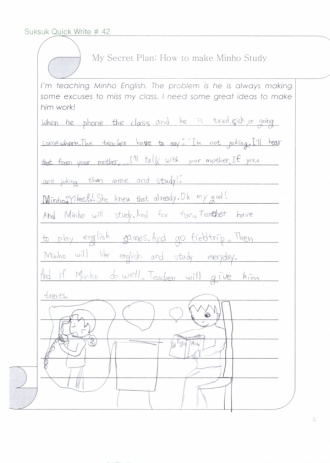 Suksuk Quick Write # 42
My Secret Plan: How to make Minho Study
I'm teaching Minho English. The problem is he is always making
some excuses to miss my class. I need some great ideas to make
him work!
When he phone the class and he is tired, sick or going
somewhere. The teacher have to say "I'm not joking, I'll hear
that from your mother, I'll talk with your mother, If you
are joking then come and study!"
Minho: Yikes!! She knew that already. Oh my god!
And Minho will study. And for fun, Teacher have
to play english games. And go fieldtrip. Then
Minho will like english and study everyday.
And if Minho do well, Teacher will give him
treats.